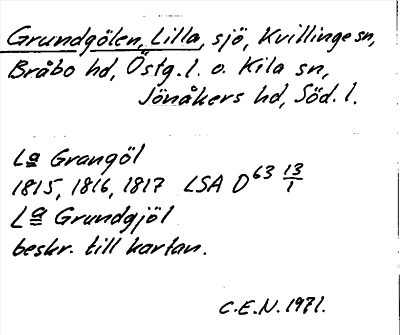 Grundgölen, Lilla, sjö, Kvillinge sn,
Bråbo hd, Östg. l. o. Kila sn,
Jönåkers hd, Söd. l.
La Grangöl
1815, 1816, 1817 LSA D63 13/1
La Grundgjöl
beskr. till kartan.
C.E.N. 1971.